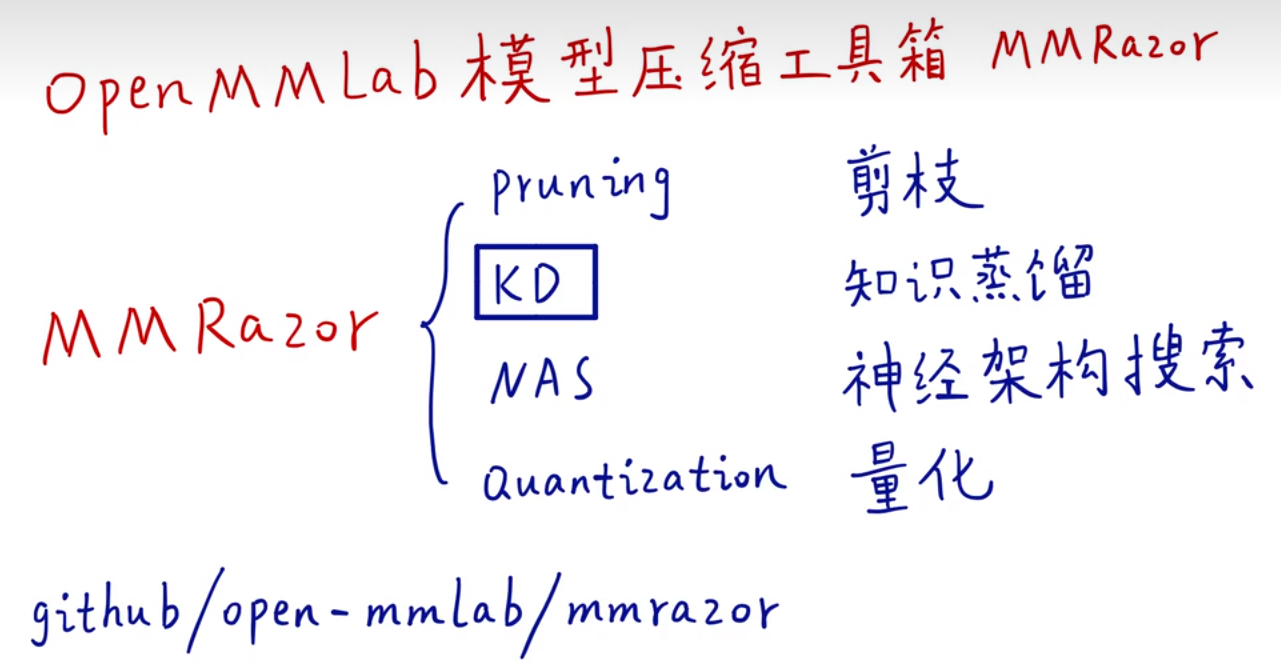 OpenMMLab 模型压缩工具箱 MMRazor
pruning 剪枝
KD 知识蒸馏
MMRazor
NAS 神经架构搜索
Quantization 量化
github/open-mmlab/mmrazor